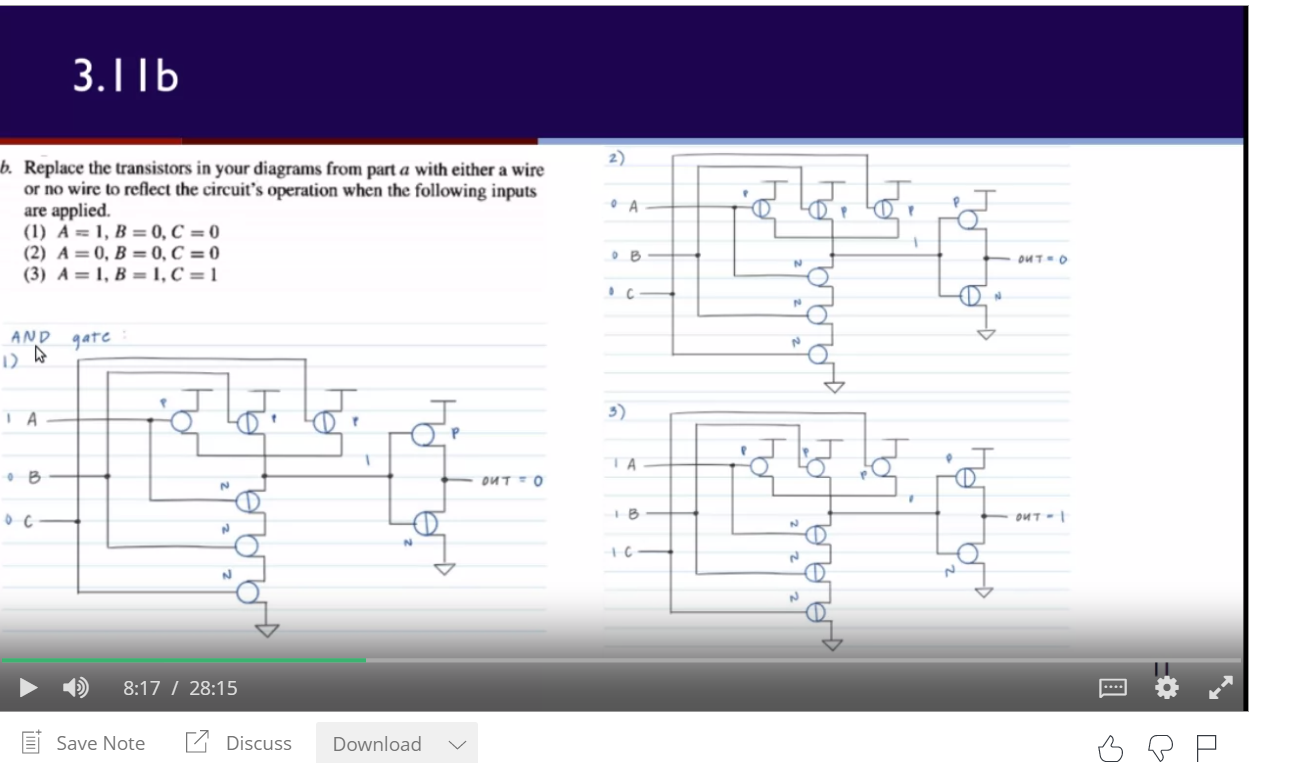 3.11b
b. Replace the transistors in your diagrams from part a with either a wire
or no wire to reflect the circuit's operation when the following inputs
are applied.
(1) A = 1, B = 0, C = 0
(2) A = 0, B = 0, C = 0
(3) A = 1, B = 1, C = 1
AND gate :
1)
P
P
P
1 A
P
1
0 B
OUT = 0
N
0 C
N
N
N
2)
P
P
P
P
0 A
1
0 B
OUT = 0
N
0 C
N
N
N
3)
P
P
P
P
1 A
1 B
OUT = 1
N
1 C
N
N
N
8:17 / 28:15
Save Note
Discuss
Download